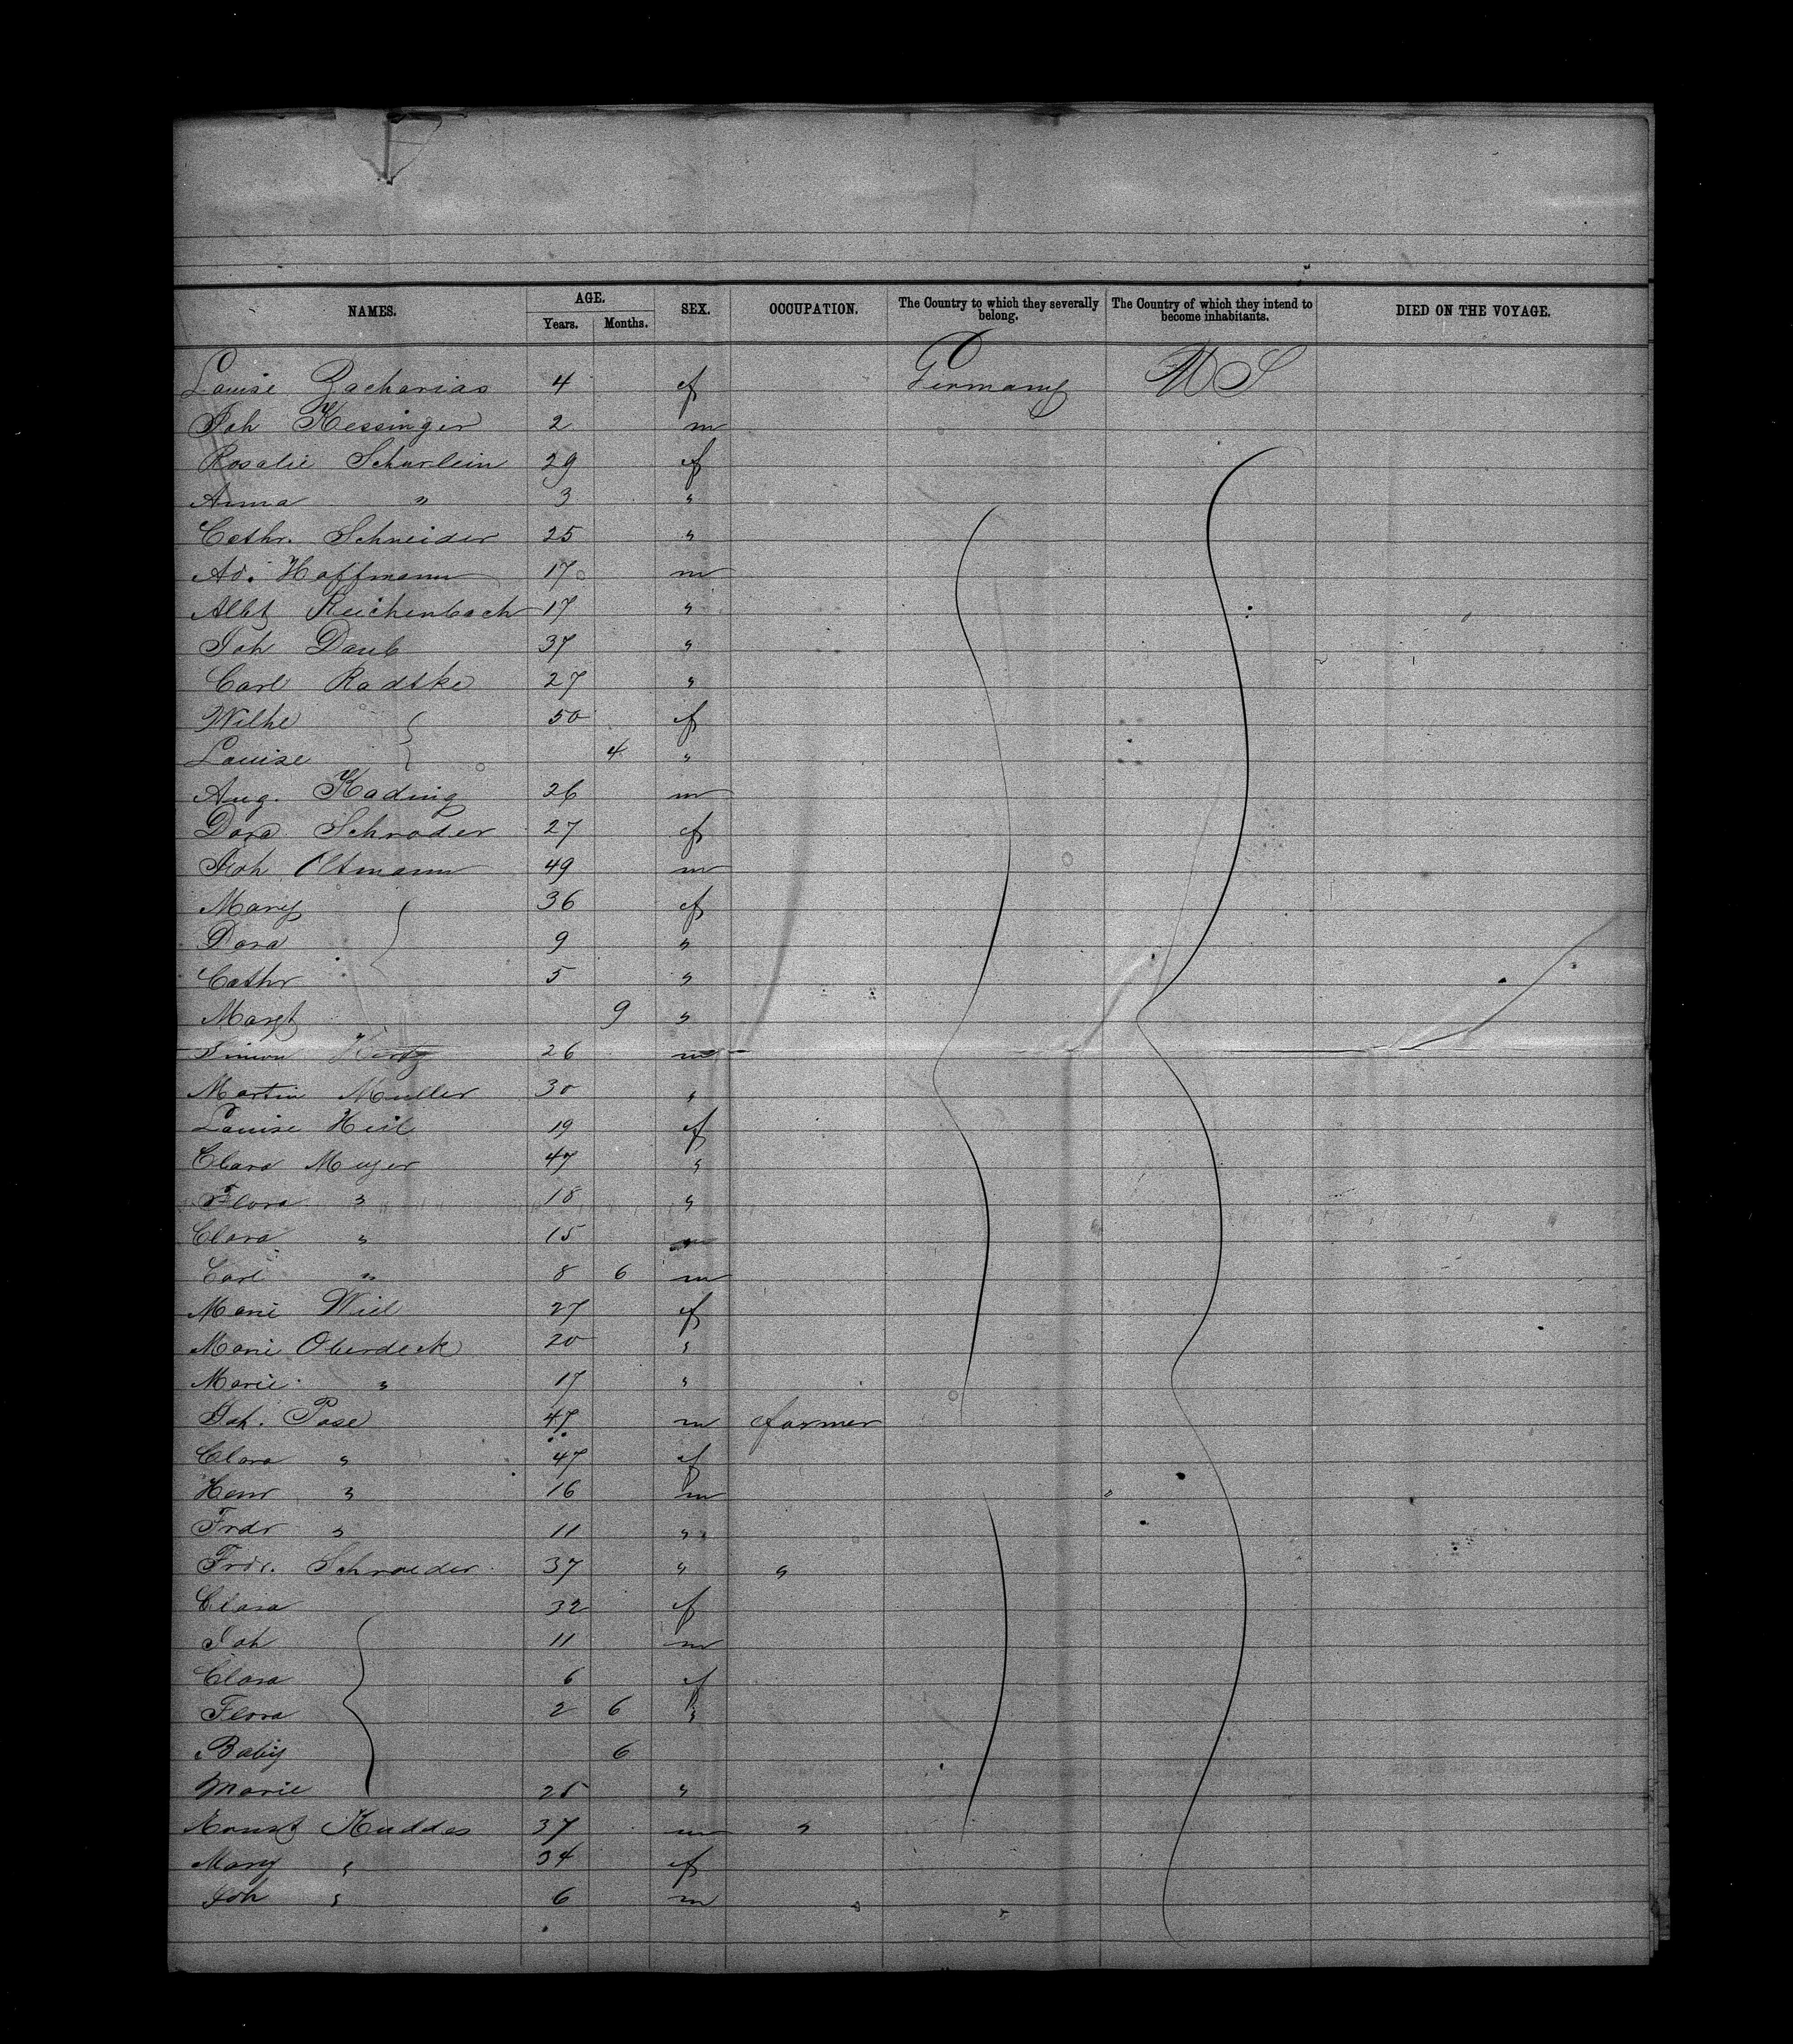 NAMES. AGE. SEX. OCCUPATION. The Country to which they severally belong. The Country of which they intend to become inhabitants. DIED ON THE VOYAGE.
Years. Months.
Louise Zacharias 4 f Germany US
Joh Kessinger 2 m
Rosalie Scharlein 29 f
Anna " 3 "
Cathr. Schneider 25 "
Ad. Hoffmann 17 m
Albt Reichenbach 17 "
Joh Daub 37 "
Carl Radtke 27 "
Wilhe 50 f
Louise 4 "
Aug. Kading 26 m
Dora Schroder 27 f
Joh Oltmann 49 m
Mary 36 f
Dora 9 "
Cathr 5 "
Margt 9 "
Simon 26 m
Martin Muller 30 "
Louise Heil 19 f
Clara Meyer 47 "
Flora " 18 "
Clara " 15
Carl " 8 6 m
Marie Wiel 27 f
Marie Oberdeck 20 "
Marie " 17 "
Joh. Pase 47 m farmer
Clara " 47 f
Henr " 16 m
Frdr " 11 "
Frdr. Schroeder 37 " "
Clara 32 f
Joh 11 m
Clara 6 f
Flora 2 6 "
Baby 6
Marie 25 "
Kuddas 37 m "
Mary " 34 f
Joh " 6 m